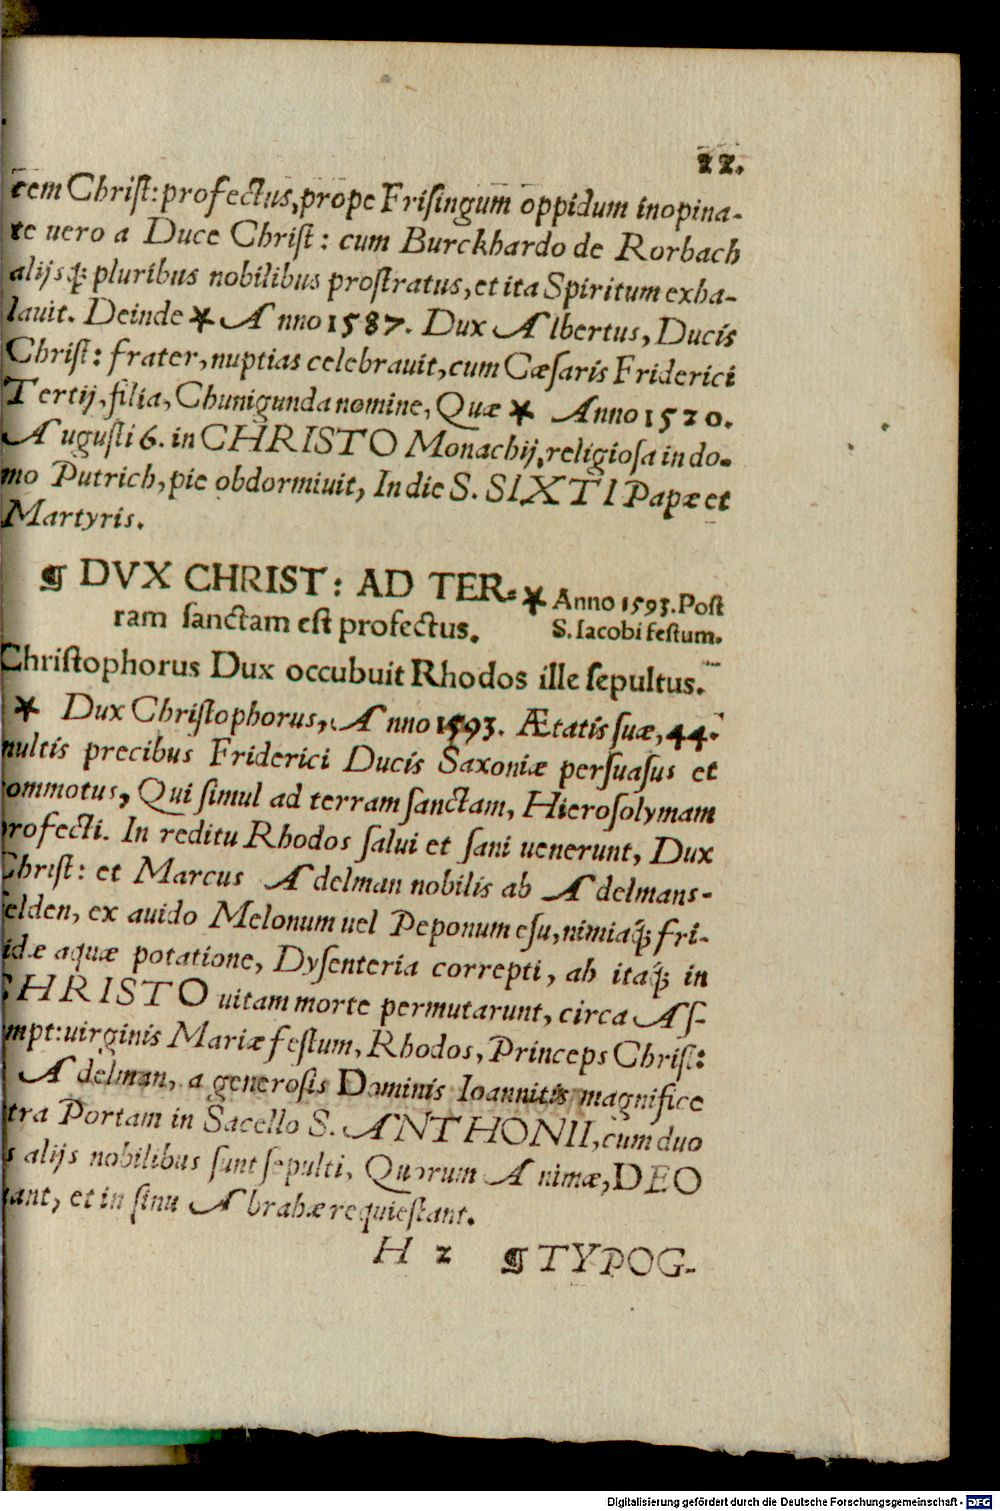 22.
rem Chriſt: profectus, prope Friſingum oppidum inopina-
te uero a Duce Chriſt: cum Burckhardo de Rorbach
alijsq́; pluribus nobilibus proſtratus, et ita Spiritum exha-
lauit. Deinde * Anno 1587. Dux Albertus, Ducis
Chriſt: frater, nuptias celebrauit, cum Cæſaris Friderici
Tertij, filia, Chunigunda nomine, Quæ * Anno 1520.
Auguſti 6. in CHRISTO Monachij, religioſa in do-
mo Putrich, pie obdormiuit, In die S. SIXTI Papæ et
Martyris.
¶ DVX CHRIST: AD TER- * Anno 1593. Poſt
ram ſanctam eſt profectus. S. Iacobi feſtum.
Chriſtophorus Dux occubuit Rhodos ille ſepultus.
* Dux Chriſtophorus, Anno 1593. Ætatis ſuæ, 44.
multis precibus Friderici Ducis Saxoniæ perſuaſus et
commotus, Qui ſimul ad terram ſanctam, Hieroſolymam
profecti. In reditu Rhodos ſalui et ſani uenerunt, Dux
Chriſt: et Marcus Adelman nobilis ab Adelmans-
felden, ex auido Melonum uel Peponum eſu, nimiaq́; fri-
idæ aquæ potatione, Dyſenteria correpti, ab itaq́; in
CHRISTO uitam morte permutarunt, circa Aſ-
mpt: uirginis Mariæ feſtum, Rhodos, Princeps Chriſt:
Adelman, a generoſis Dominis Ioannitis magnifice
tra Portam in Sacello S. ANTHONII, cum duo
s alijs nobilibus ſunt ſepulti, Quorum Animæ, DEO
uant, et in ſinu Abrahæ requieſcant.
H 2 ¶ TYPOG-
Digitalisierung gefördert durch die Deutsche Forschungsgemeinschaft - DFG